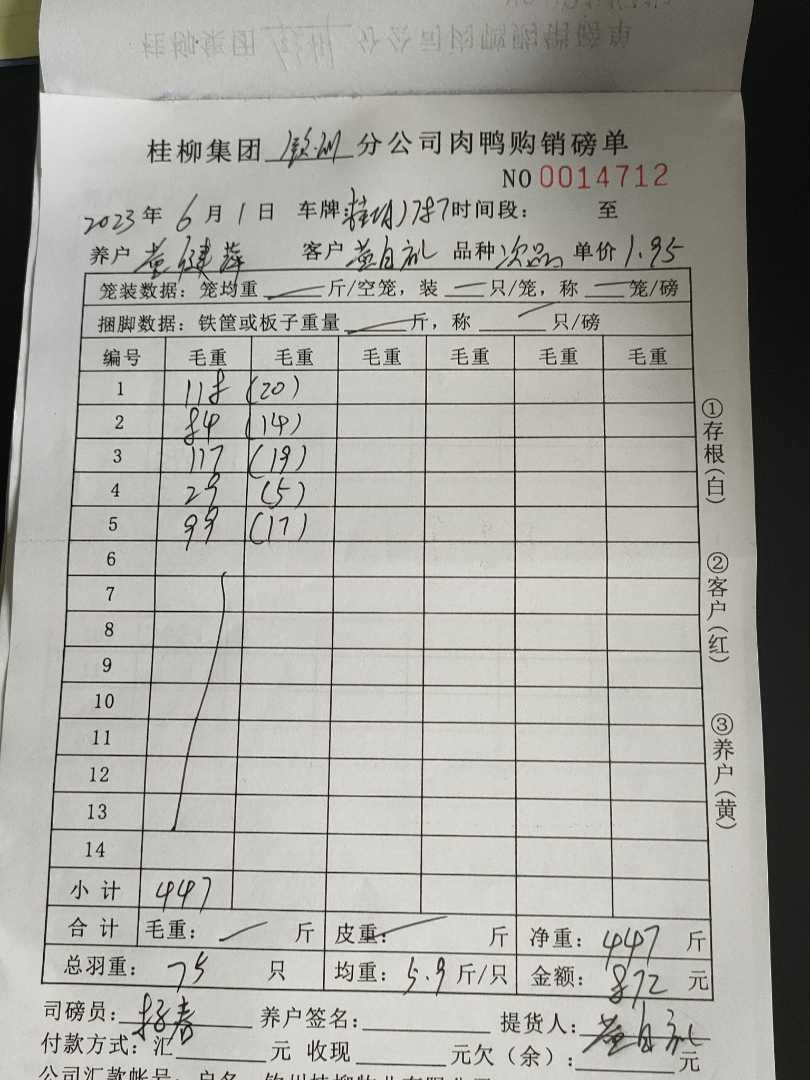 桂柳集团 钦州 分公司肉鸭购销磅单
NO 0014712
2023年 6月 1日 车牌 时间段: 至
养户 黄健萍 客户 黄自礼 品种 次品 单价 1.95
笼装数据: 笼均重 斤/空笼, 装 只/笼, 称 笼/磅
捆脚数据: 铁筐或板子重量 斤, 称 只/磅
编号 毛重 毛重 毛重 毛重 毛重 毛重
1 118 (20)
2 84 (14)
3 117 (19)
4 29 (5)
5 99 (17)
6
7
8
9
10
11
12
13
14
小计 447
合计 毛重: 斤 皮重: 斤 净重: 447 斤
总羽重: 75 只 均重: 5.9 斤/只 金额: 872 元
司磅员: 养户签名: 提货人: 黄自礼
付款方式: 汇 元 收现 元欠(余): 元
①存根(白)
②客户(红)
③养户(黄)